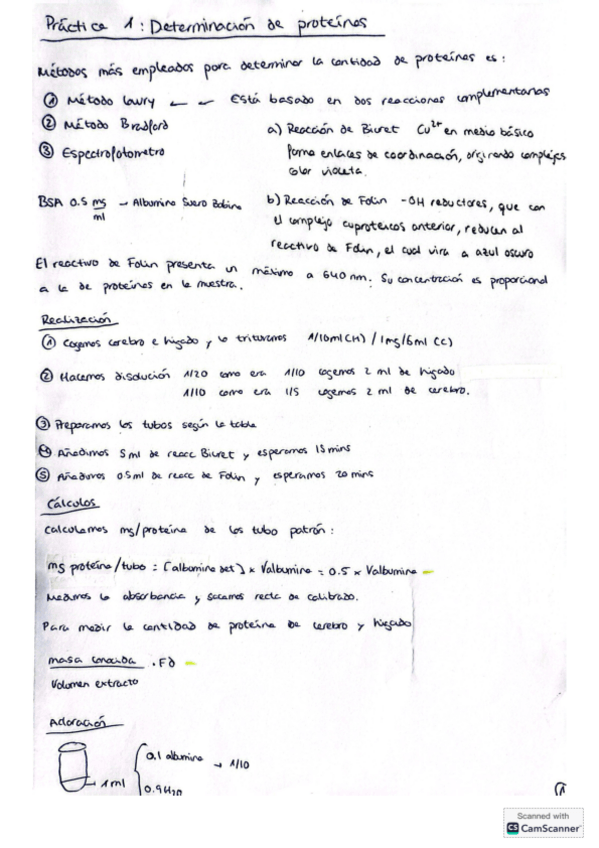 Práctica 1: Determinación de proteínas
Métodos más empleados para determinar la cantidad de proteínas es:
① Método Lowry ← ← Está basado en dos reacciones complementarias
② Método Bradford
③ Espectrofotometro
a) Reacción de Biuret Cu²⁺ en medio básico
forma enlaces de coordinación, originando complejos
color violeta.
BSA 0.5 mg/ml → Albumina Suero Bobino
b) Reacción de Folin -OH reductores, que con
el complejo cuproteicos anterior, reducen al
reactivo de Folin, el cual vira a azul oscuro
El reactivo de Folin presenta un máximo a 640 nm. Su concentración es proporcional
a la de proteínas en la muestra.
Realización
① Cogemos cerebro e hígado y lo trituramos 1/10ml(H) / 1mg/5ml (C)
② Hacemos disolución 1/20 como era 1/10 cogemos 2 ml de hígado
1/10 como era 1/5 cogemos 2 ml de cerebro.
③ Preparamos los tubos según la tabla
④ Añadimos 5 ml de reacc Biuret y esperamos 15 mins
⑤ Añadimos 0.5 ml de reacc de Folin y esperamos 20 mins
Cálculos
Calculamos mg/proteína de los tubo patrón:
mg proteína/tubo = [albumina set] × Valbumina = 0.5 × Valbumina
Medimos la absorbancia y sacamos recta de calibrado.
Para medir la cantidad de proteína de cerebro y hígado
masa conocida . Fd
Volumen extracto
Aclaración
0.1 albumina → 1/10
1 ml
0.9 H₂O
1
Scanned with
CS CamScanner